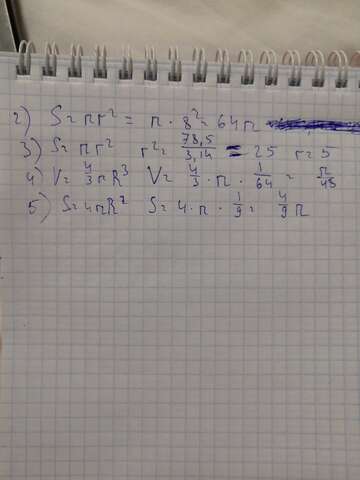 2) S = πr² = π · 8² = 64π
3) S = πr² r² = 78,5/3,14 = 25 r = 5
4) V = 4/3 πR³ V = 4/3 · π · 1/64 = π/48
5) S = 4πR² S = 4 · π · 1/9 = 4/9 π